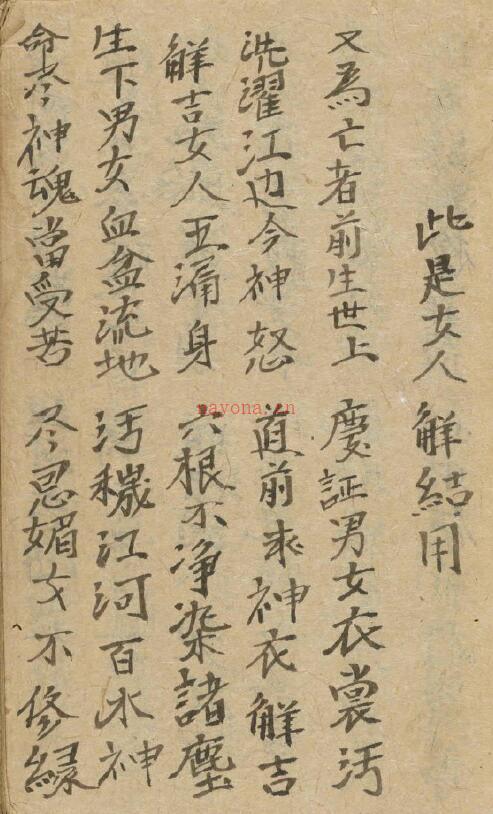 此是女人解結用
又為亡者前生世上 慶証男女衣裳污
洗濯江边令神怒 直前求神衣解吉
解吉女人五漏身 六根不净染諸塵
生下男女血盆流地 污穢江河百水神
命终神魂當受苦 尽思媚女不修緣
nayona.cn